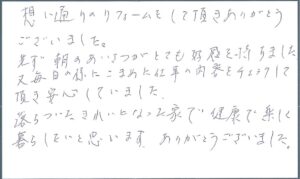 想い通りのリフォームをして頂きありがとう
ございました。
先ず朝のあいさつがとても好感を持ちました
又毎日の様にこまめに仕事の内容を
頂き安心していました。
落ちついたきれいになった家で健康で楽しく
暮らしたいと思います。ありがとうございました。